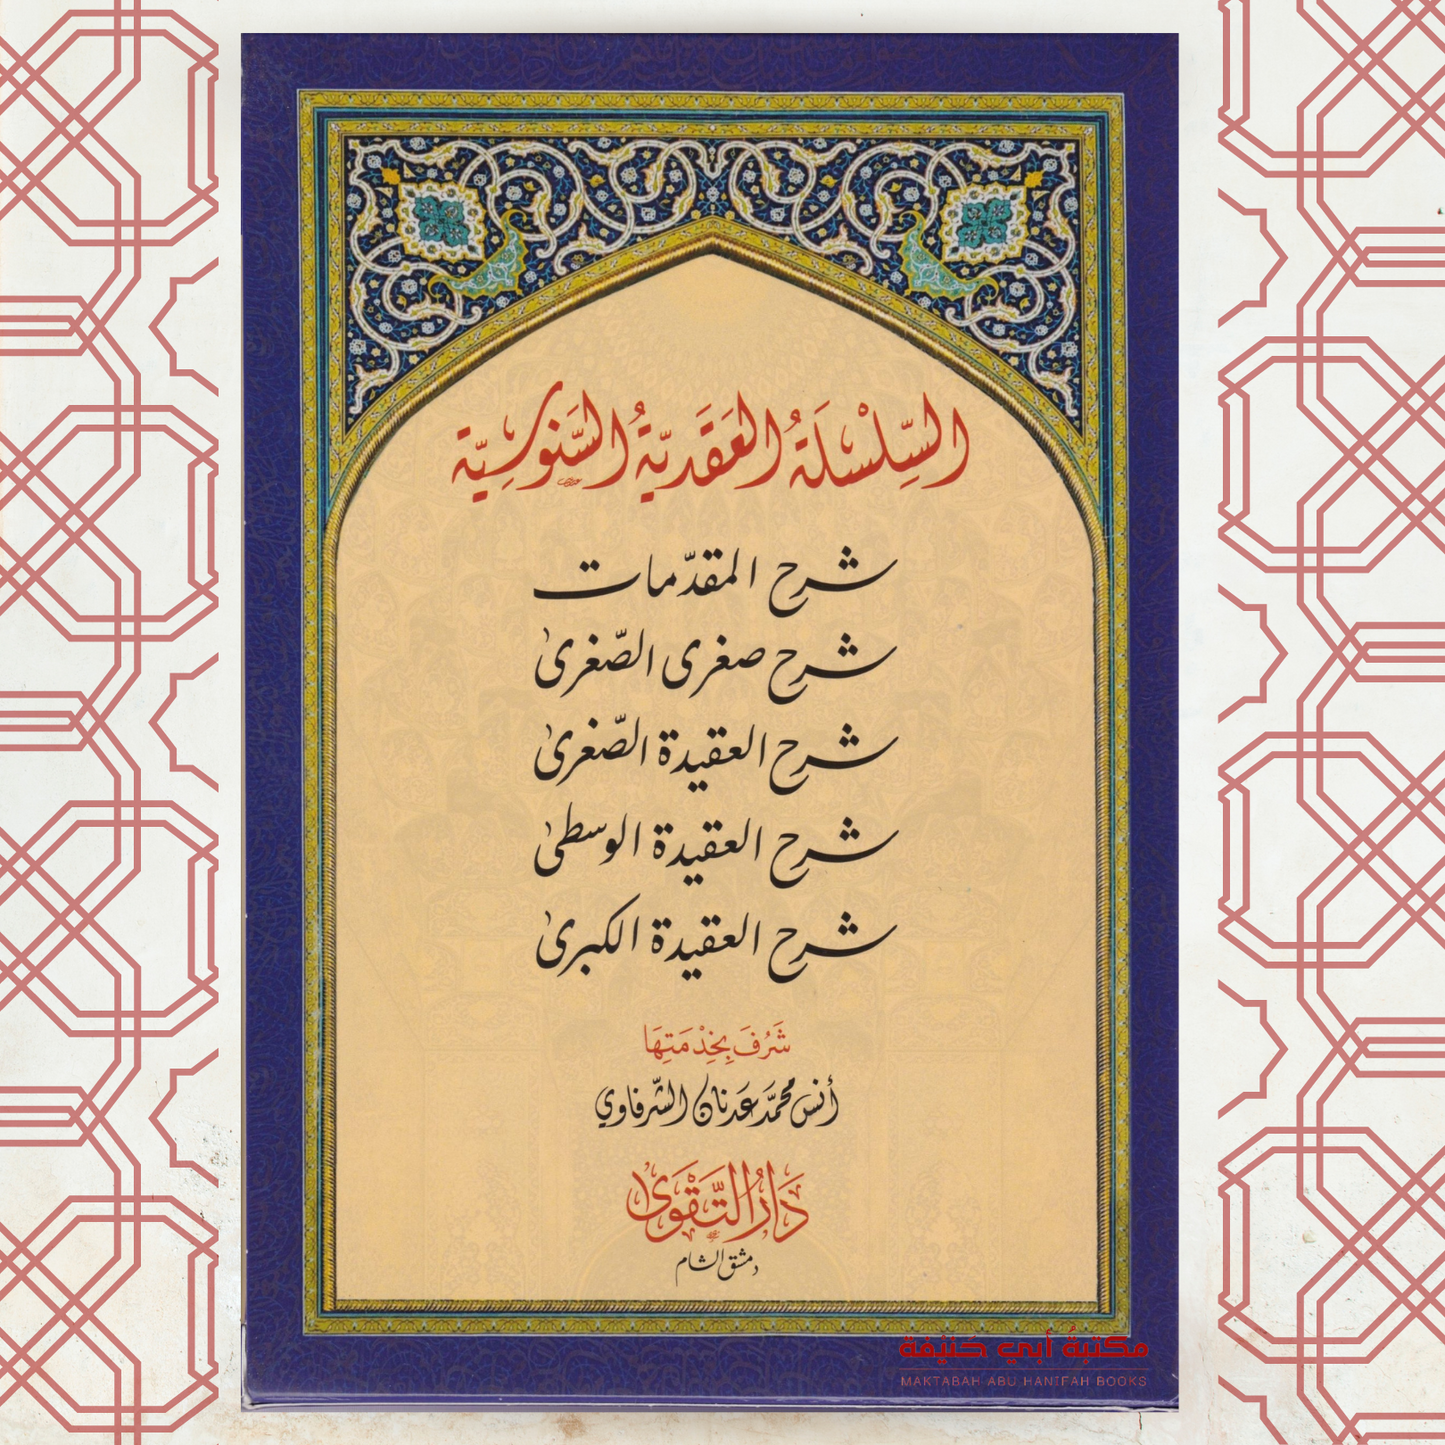 السِّلْسِلَةُ العَقَدِيَّةُ السَّنُوسِيَّة
شرح المقدّمات
شرح صغرى الصّغرىٰ
شرح العقيدة الصّغرىٰ
شرح العقيدة الوسطىٰ
شرح العقيدة الكبرىٰ
شَرُفَ بِخِدْمَتِهَا
أنس محمَّد عَدنان الشّرفاوي
دَارُ التَّقْوَىٰ
دمشق الشام
مكتبةُ أبي حَنيْفَة
MAKTABAH ABU HANIFAH BOOKS